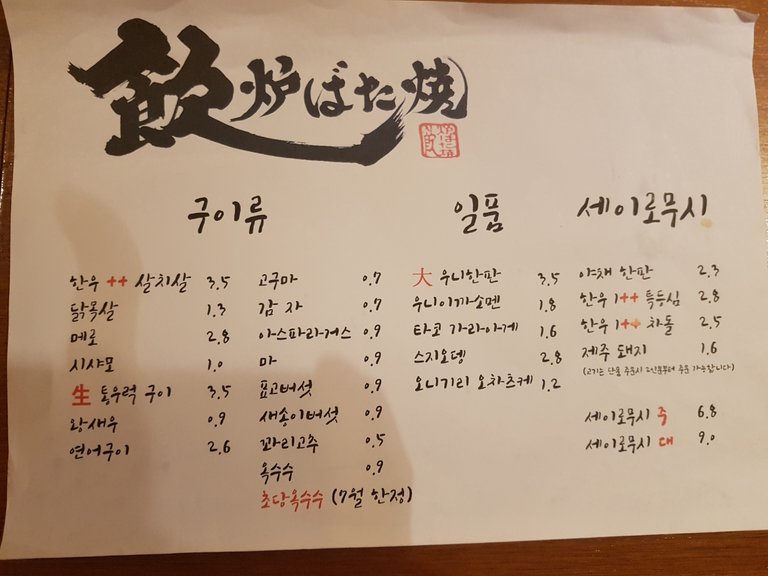 飲 炉ばた焼
구이류
한우 ++ 살치살 3.5
닭목살 1.3
메로 2.8
시샤모 1.0
生 통우럭 구이 3.5
왕새우 0.9
연어구이 2.6
고구마 0.7
감자 0.7
아스파라거스 0.9
마 0.9
표고버섯 0.9
새송이버섯 0.9
꽈리고추 0.5
옥수수 0.9
초당옥수수 (7월 한정)
일품
大 우니한판 3.5
우니이까소멘 1.8
타코 가라아게 1.6
스지오뎅 2.8
오니기리 오차츠케 1.2
세이로무시
야채 한판 2.3
한우 1++ 특등심 2.8
한우 1++ 차돌 2.5
제주 돼지 1.6
(고기는 단품 주문시 2인분부터 주문 가능합니다)
세이로무시 주 6.8
세이로무시 대 9.0